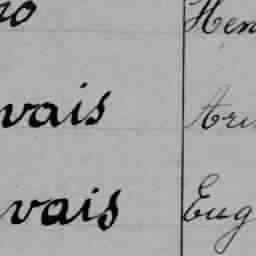 no Hen
vais Ari
vais Eug